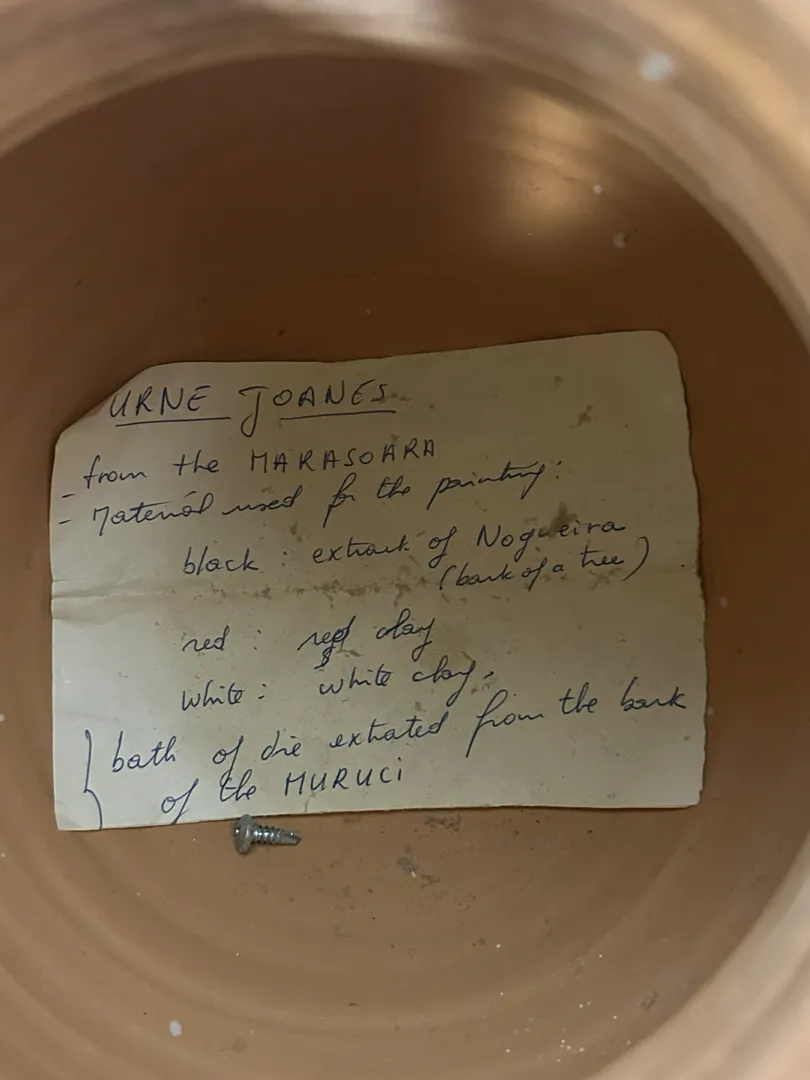 URNE JOANES
- from the MARASOARA
- Material used for the painting:
black : extract of Nogueira
(bark of a tree)
red : red clay
white : white clay.
bath of die extrated from the bark
of the MURUCI